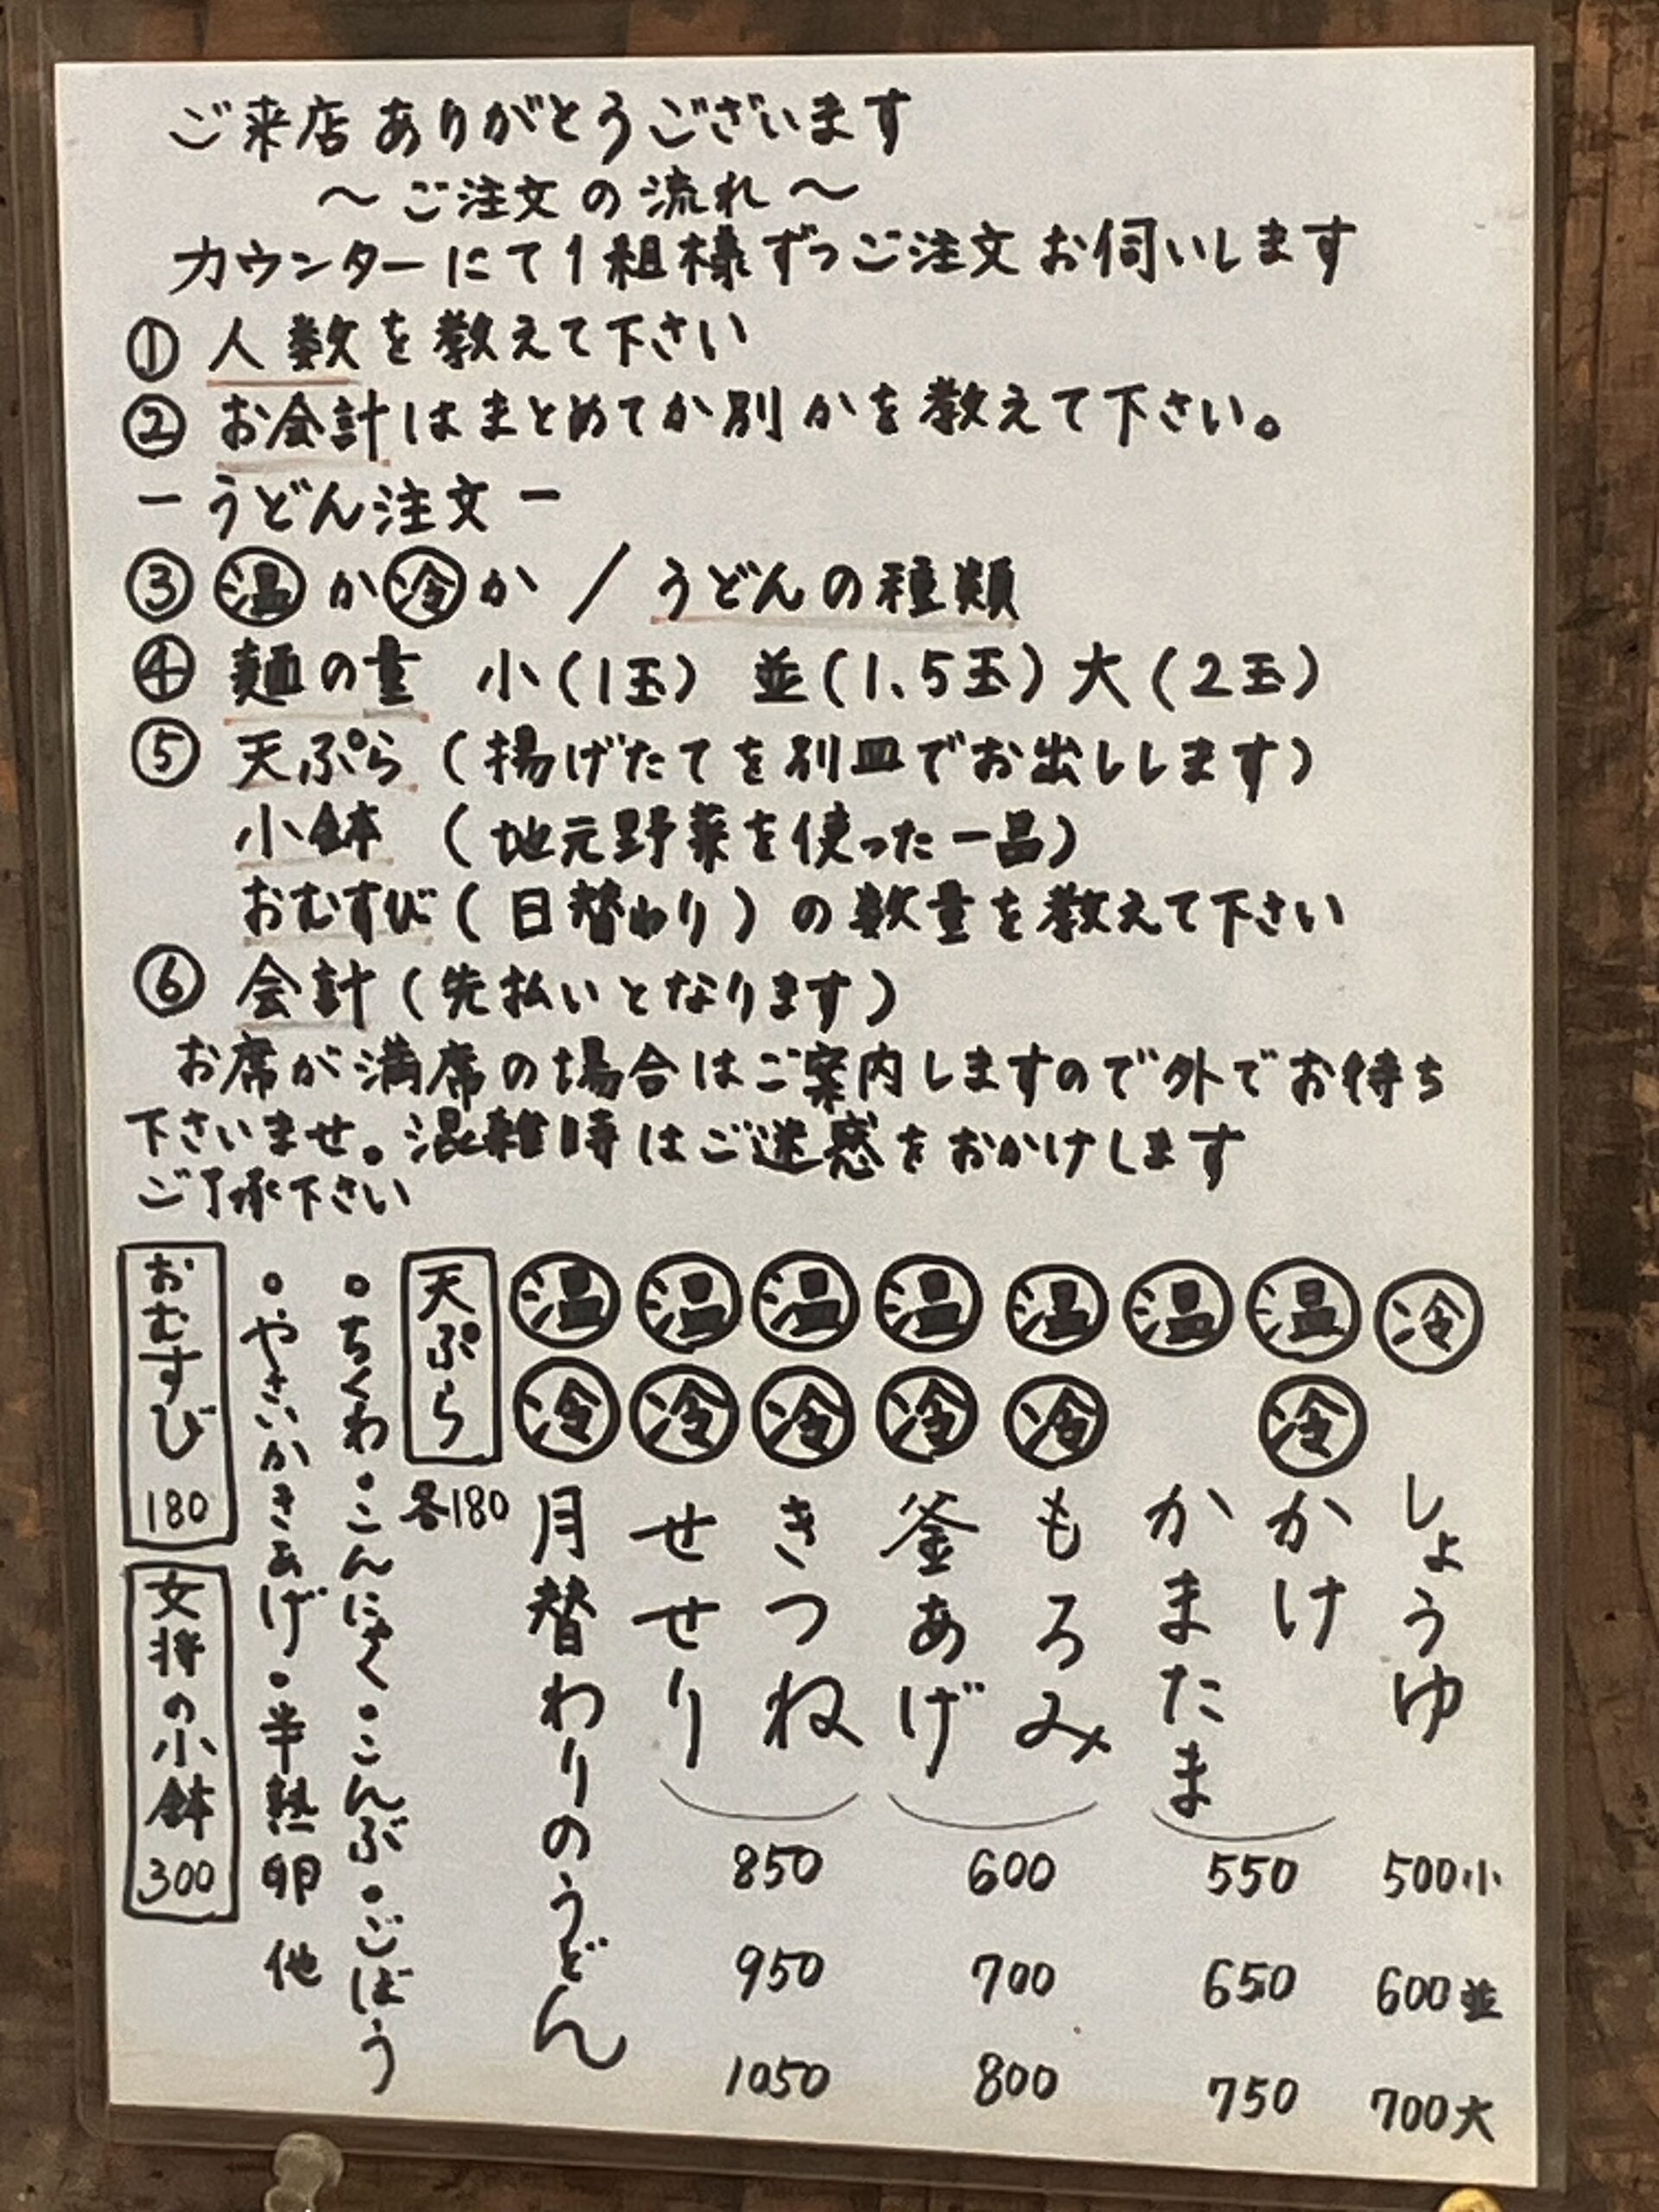 ご来店ありがとうございます
～ご注文の流れ～
カウンターにて1組様ずつご注文お伺いします
①人数を教えて下さい
②お会計はまとめてか別かを教えて下さい。
ーうどん注文ー
③㊀温か冷か／うどんの種類
④麺の量 小(1玉) 並(1.5玉) 大(2玉)
⑤天ぷら(揚げたてを別皿でお出しします)
小鉢(地元野菜を使った一品)
おむすび(日替わり)の数量を教えて下さい
⑥会計(先払いとなります)
お席が満席の場合はご案内しますので外でお待ち
下さいませ。混雑時はご迷惑をおかけします
ご了承下さい
冷 しょうゆ 500小 600並 700大
温 冷 かけ
温 かまたま
550 650 750
温 冷 もろみ
温 冷 釜あげ
600 700 800
温 冷 きつね
温 冷 せせり
850 950 1050
温 冷 月替わりのうどん
天ぷら 各180
・ちくわ・こんにゃく・こんぶ・ごぼう
・やさいかきあげ・半熟卵 他
おむすび 180
女将の小鉢 300